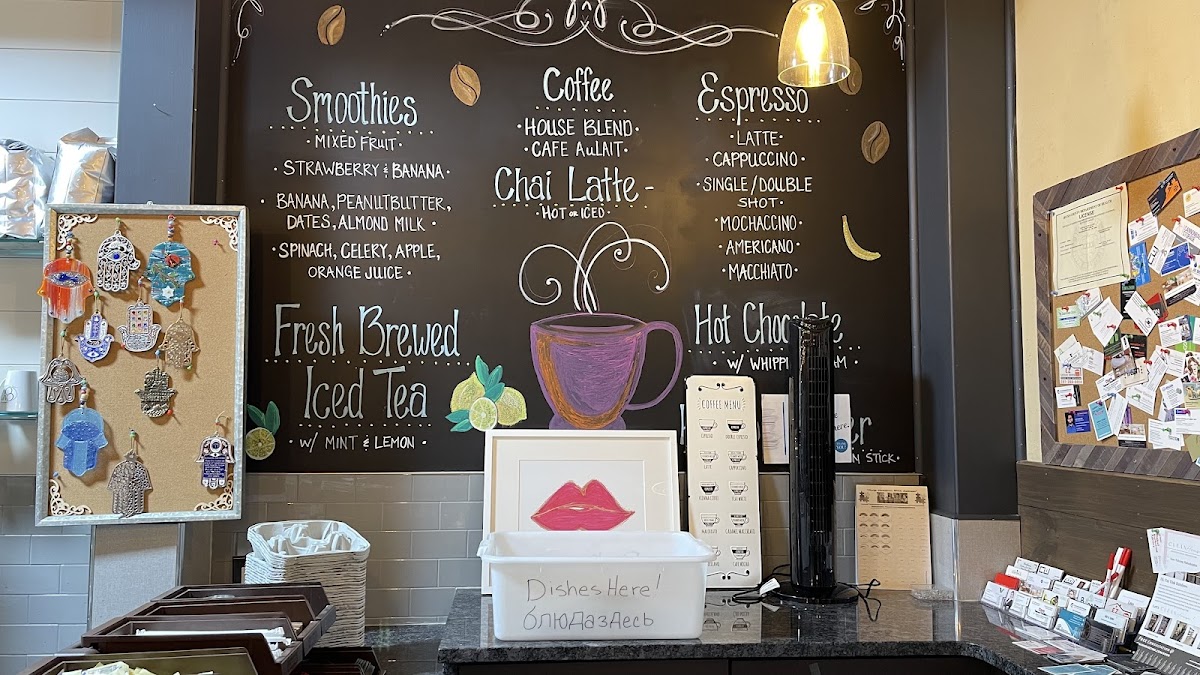 Smoothies
• MIXED FRUIT •
• STRAWBERRY & BANANA •
• BANANA, PEANUTBUTTER,
DATES, ALMOND MILK •
• SPINACH, CELERY, APPLE,
ORANGE JUICE •
Fresh Brewed
Iced Tea
• W/ MINT & LEMON •
Coffee
• HOUSE BLEND •
• CAFE AU LAIT •
Chai Latte -
• HOT OR ICED •
Espresso
• LATTE •
• CAPPUCCINO •
• SINGLE/DOUBLE
SHOT •
• MOCHACCINO •
• AMERICANO •
• MACCHIATO •
Hot Chocolate
W/
STICK •
COFFEE MENU
LICENSE
Dishes Here!
блюда здесь